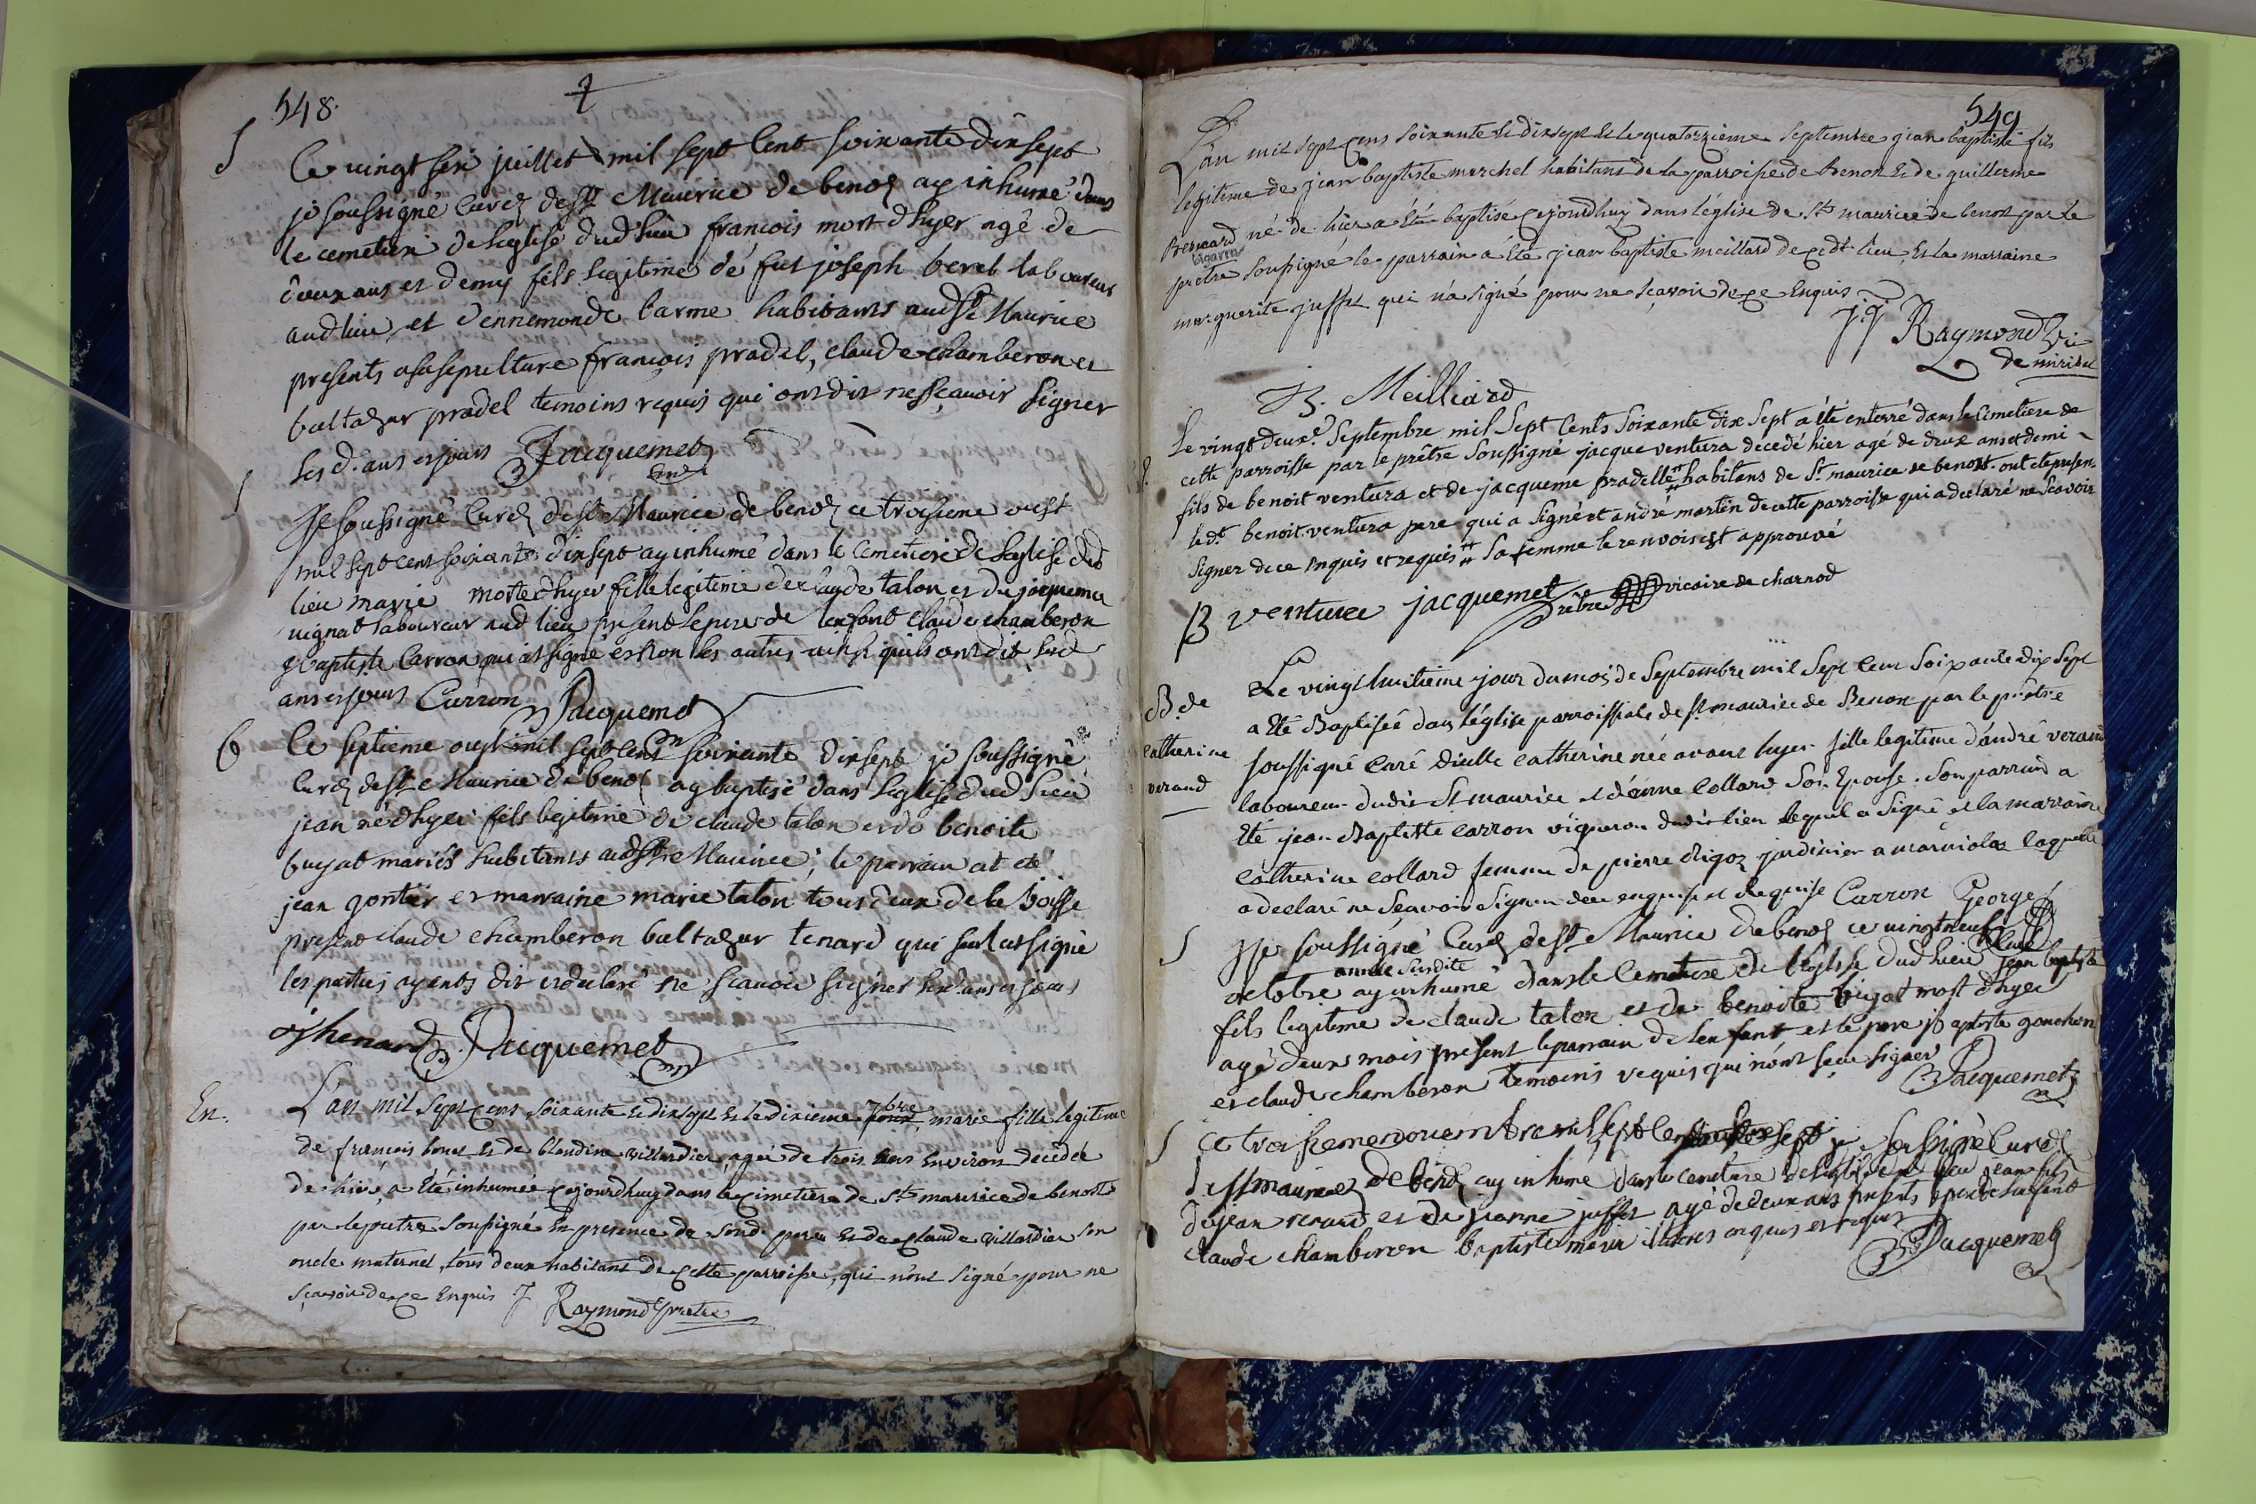 548.
S
Ce vingt six juillet mil sept cent soixante dix sept
je soussigné curé de St Maurice de benos ay inhumé dans
le cemetiere de leglise dud lieu francois mort dhyer agé de
deux ans et demy fils legitime de fut joseph beret laboureur
aud lieu et dennemonde carme habitants aud St Maurice
presents a sa sepulture francois pradel, claude chamberon et
baltazar pradel temoins requis qui ont dit ne sçavoir signer
les d. ans et jours Jacquemet
S
Je soussigné curé de St Maurice de benos ce troisieme aoust
mil sept cent soixante dix sept ay inhumé dans le cemetiere de leglise dud
lieu marie morte dhyer fille legitime de claude talon et de jaquema
vignat laboureur aud lieu present le pere de lenfant claude chamberon
et baptiste Carron qui at signé et non les autres ainsi quils ont dit lesd
ans et jours Carron Jacquemet
B
Ce septieme oust mil sept cent soixante dix sept je soussigné
curé de St Maurice de benos ay baptisé dans leglise dud lieu
jean né dhyer fils legitime de claude talon et de benoite
bujat mariés habitants aud St Maurice; le parrain at eté
jean gontier et marraine marie talon tous deux de la boisse
present claude chamberon baltazar tenard qui seul at signé
les parties ayants dit et declaré ne scavoir signer lesd ans et jours
thenard Jacquemet
En.
L'an mil sept cens soixante et dix sept et le dixieme 7bre marie fille legitime
de francois bonet et de claudine villardier, agée de trois ans environ decedée
de hier a été inhumée cejourdhuy dans le cimetiere de St maurice de benost
par le pretre soussigné en presence de sond. pere et de claude villardier son
oncle maternel, tous deux habitans de cette parroisse, qui n'ont signé pour ne
sçavoir de ce enquis J Raymond pretre
549
L'an mil sept cens soixante et dix sept et le quatorzieme septembre jean baptiste fils
legitime de jean baptiste marchel habitans de la parroisse de Benon et de guillerme
Bernard né de hier a été baptisé cejourdhuy dans l'église de St maurice de benost par le
vicaire
pretre soussigné le parrain a été jean baptiste meillard de ced. lieu, et la marraine
marguerite juffet qui n'a signé pour ne sçavoir de ce enquis
JJ Raymond vic
de miribel
JB. Meilliard
Le vingt deux.e Septembre mil Sept Cents Soixante dix Sept a été enterré dans le Cimetiere de
cette parroisse par le prêtre Soussigné jacque ventura decedé hier agé de deux ans et demi
fils de benoit ventura et de jacqueme pradelle # habitans de St maurice de benost. ont été presens
led.t benoit ventura pere qui a Signé et andre martin de cette parroisse qui a declaré ne Scavoir
Signer de ce enquis et requis # Sa femme le renvois est approuvé
B venture jacquemet Prêtre vicaire de charnod
B. de
catherine
veraud
Le vingt huitieme jour du mois de Septembre mil Sept Cent Soixante dix Sept
a été Baptisée dans l'église parroissiale de st maurice de Benon par le prêtre
soussigné curé dielle catherine née avant hyer fille legitime d'andré veraud
laboureur dudit St maurice et d'anne Collard Son Epouse. Son parrain a
été jean Baptiste carron vigneron dudit lieu lequel a Signé et la marraine
catherine collard femme de pierre Rigoz jardinier a marniolaz laquelle
a declaré ne Scavoir Signer de ce enquise et Requise Carron George
curé
S
Je soussigné Curé de St Maurice de benos ce vingt neuf
année susdite
octobre ay inhumé dans le Cemetiere de l'eglise dud lieu jean baptiste
fils legitime de claude talon et de benoite bujat mort dhyer
agé deux mois present le parrain de lenfant et le pere j baptiste gonchon
et claude chamberon temoins requis qui n'ont sceu signer
Jacquemet
S
Ce troisieme novembre mil sept cent soixante sept je soussigné Curé
de St maurice de benos ay inhumé dans le cemetiere de leglise dud lieu jean fils
de jean renard et de jeanne juffet agé de deux ans presents le pere de lenfant
claude chamberon baptiste enquis et requis
Jacquemet